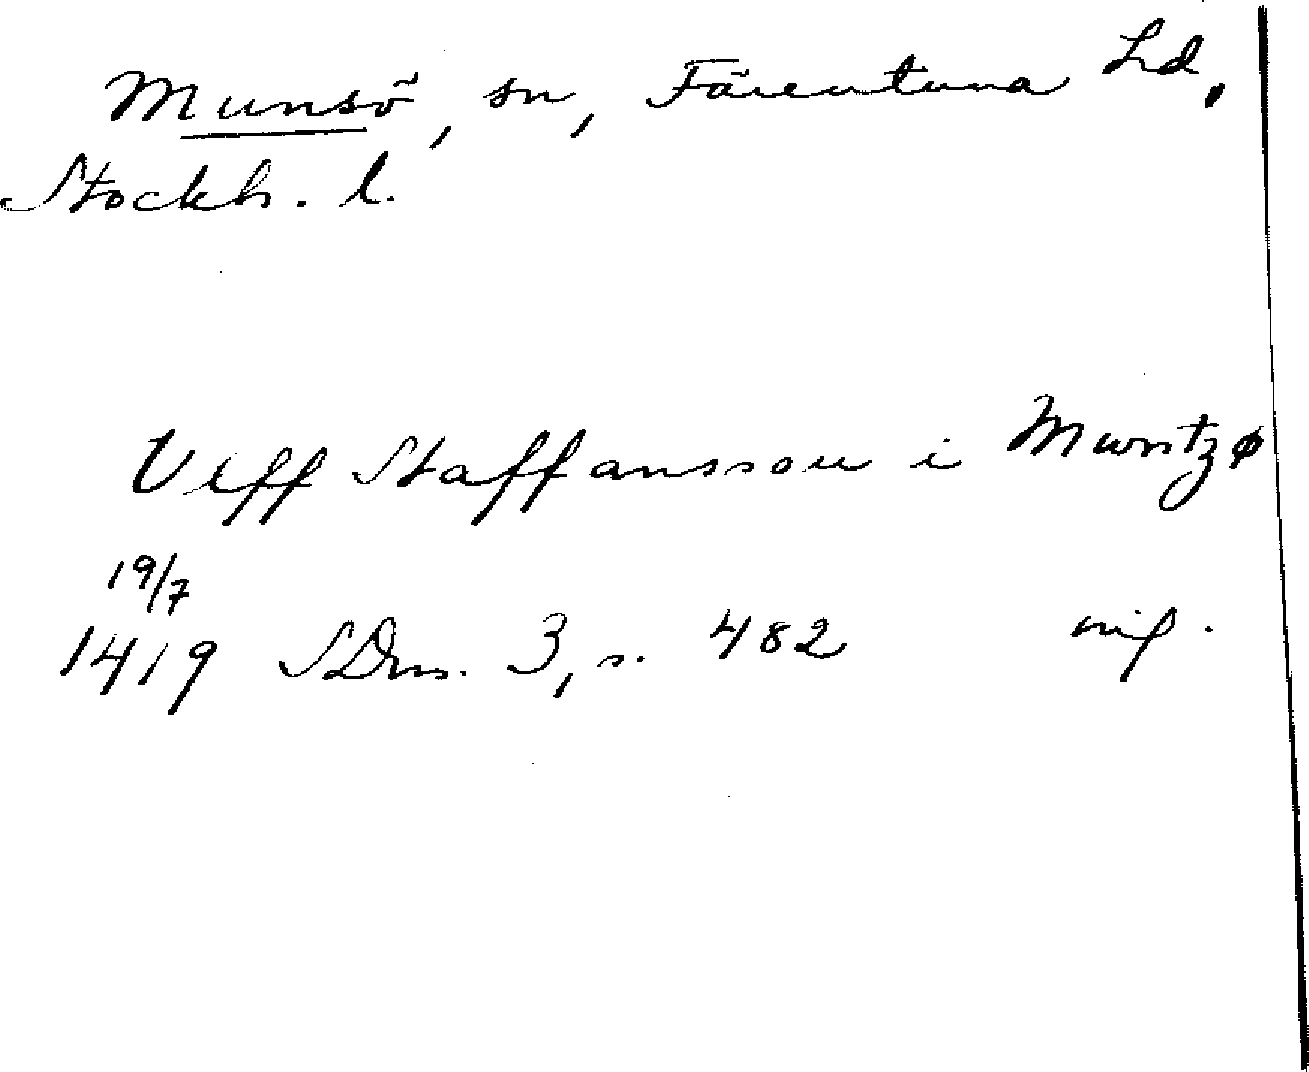 Munsö, sn, Färentuna hd,
Stockh. l.
Ulff Staffansson i Muntzø
19/7
1419 SDns. 3, s. 482